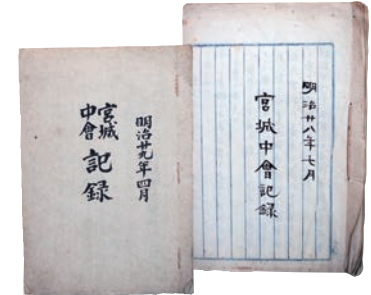 明治廿八年七月
宮城中會記録
明治廿九年四月
宮城
中會
記録